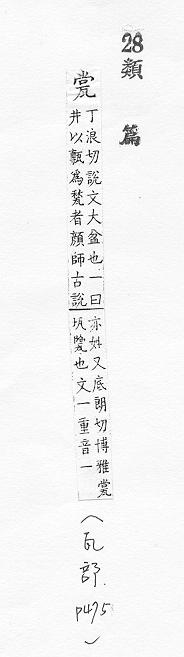 28類篇
瓽
丁浪切說文大盆也一曰
井以甎為甃者顏師古說
亦姓又底朗切博雅瓽
也文一重音一
（瓦部．p475）